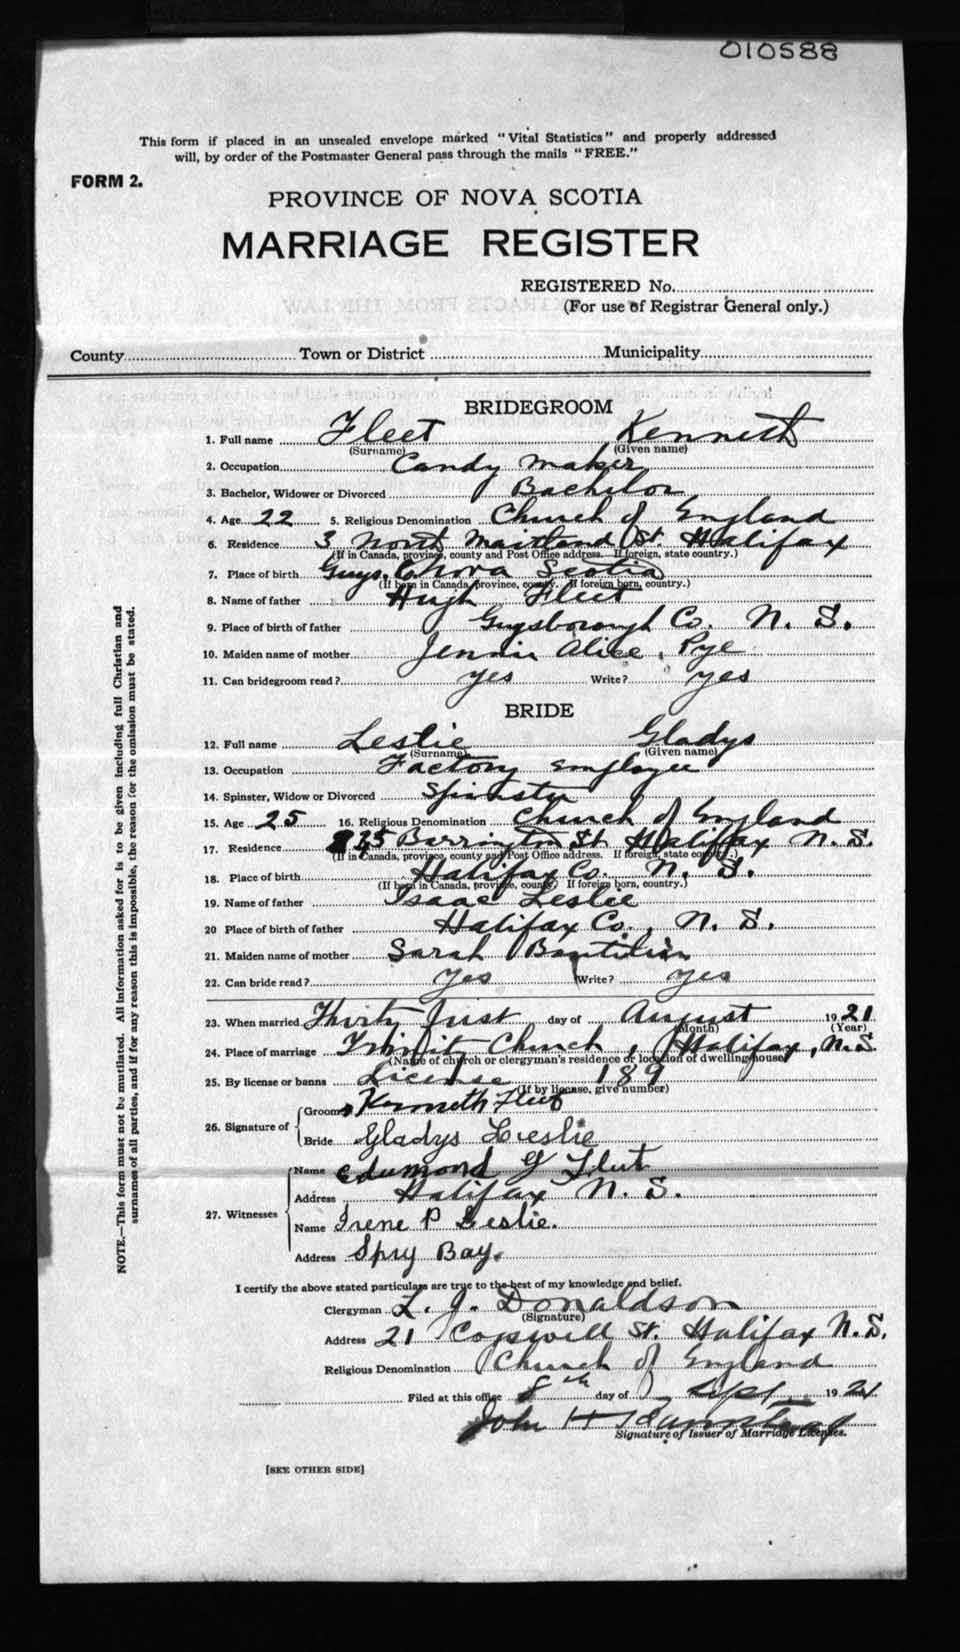 010588
This form if placed in an unsealed envelope marked "Vital Statistics" and properly addressed
will, by order of the Postmaster General pass through the mails "FREE."
FORM 2.
PROVINCE OF NOVA SCOTIA
MARRIAGE REGISTER
REGISTERED No.
(For use of Registrar General only.)
County Town or District Municipality
BRIDEGROOM
1. Full name Fleet Kenneth
(Surname) (Given name)
2. Occupation Candy maker
3. Bachelor, Widower or Divorced Bachelor
4. Age 22 5. Religious Denomination Church of England
6. Residence 3 North Maitland St. Halifax
(If in Canada, province, county and Post Office address. If foreign, state country.)
7. Place of birth Guys. Co Nova Scotia
(If born in Canada, province, county. If foreign born, country.)
8. Name of father Hugh Fleet
9. Place of birth of father Guysborough Co. N. S.
10. Maiden name of mother Jennie Alice Pye
11. Can bridegroom read? yes Write? yes
BRIDE
12. Full name Leslie Gladys
(Surname) (Given name)
13. Occupation Factory employee
14. Spinster, Widow or Divorced Spinster
15. Age 25 16. Religious Denomination Church of England
17. Residence Barrington St. Halifax N. S.
(If in Canada, province, county and Post Office address. If foreign, state country.)
18. Place of birth Halifax Co. N. S.
(If born in Canada, province, county) If foreign born, country.)
19. Name of father Isaac Leslie
20 Place of birth of father Halifax Co., N. S.
21. Maiden name of mother Sarah
22. Can bride read? yes Write? yes
23. When married Thirty first day of August 1921
(Month) (Year)
24. Place of marriage Trinity Church, Halifax, N.S.
(Name of church or clergyman's residence or location of dwelling house)
25. By license or banns License 189
(If by license, give number)
26. Signature of
Groom Kenneth Fleet
Bride Gladys Leslie
27. Witnesses
Name Edumond G Fleet
Address Halifax N. S.
Name Irene P Leslie.
Address Spry Bay.
I certify the above stated particulars are true to the best of my knowledge and belief.
Clergyman L. J. Donaldson
(Signature)
Address 21 Cogswell St. Halifax N. S.
Religious Denomination Church of England
Filed at this office 8th day of Sept 1921
John H
Signature of Issuer of Marriage Licenses.
[SEE OTHER SIDE]
NOTE.—This form must not be mutilated. All information asked for is to be given including full Christian and
surnames of all parties, and if for any reason this is impossible, the reason for the omission must be stated.